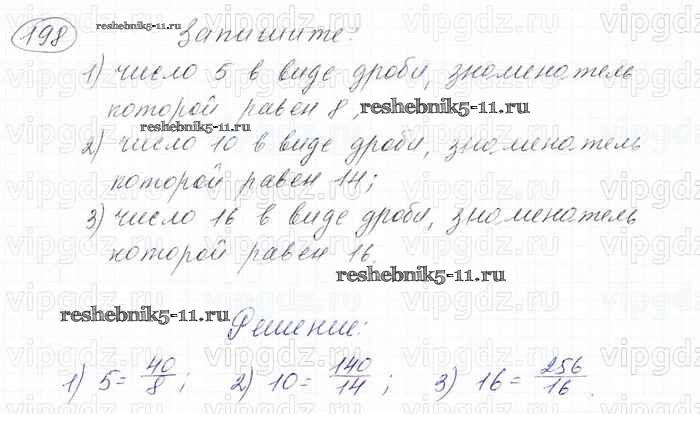 198 Запишите:
1) число 5 в виде дроби, знаменатель
которой равен 8;
2) число 10 в виде дроби, знаменатель
которой равен 14;
3) число 16 в виде дроби, знаменатель
которой равен 16.
Решение:
1) 5 = 40/8 ; 2) 10 = 140/14 ; 3) 16 = 256/16 .
reshebnik5-11.ru
reshebnik5-11.ru
reshebnik5-11.ru
reshebnik5-11.ru
reshebnik5-11.ru
vipgdz.ru